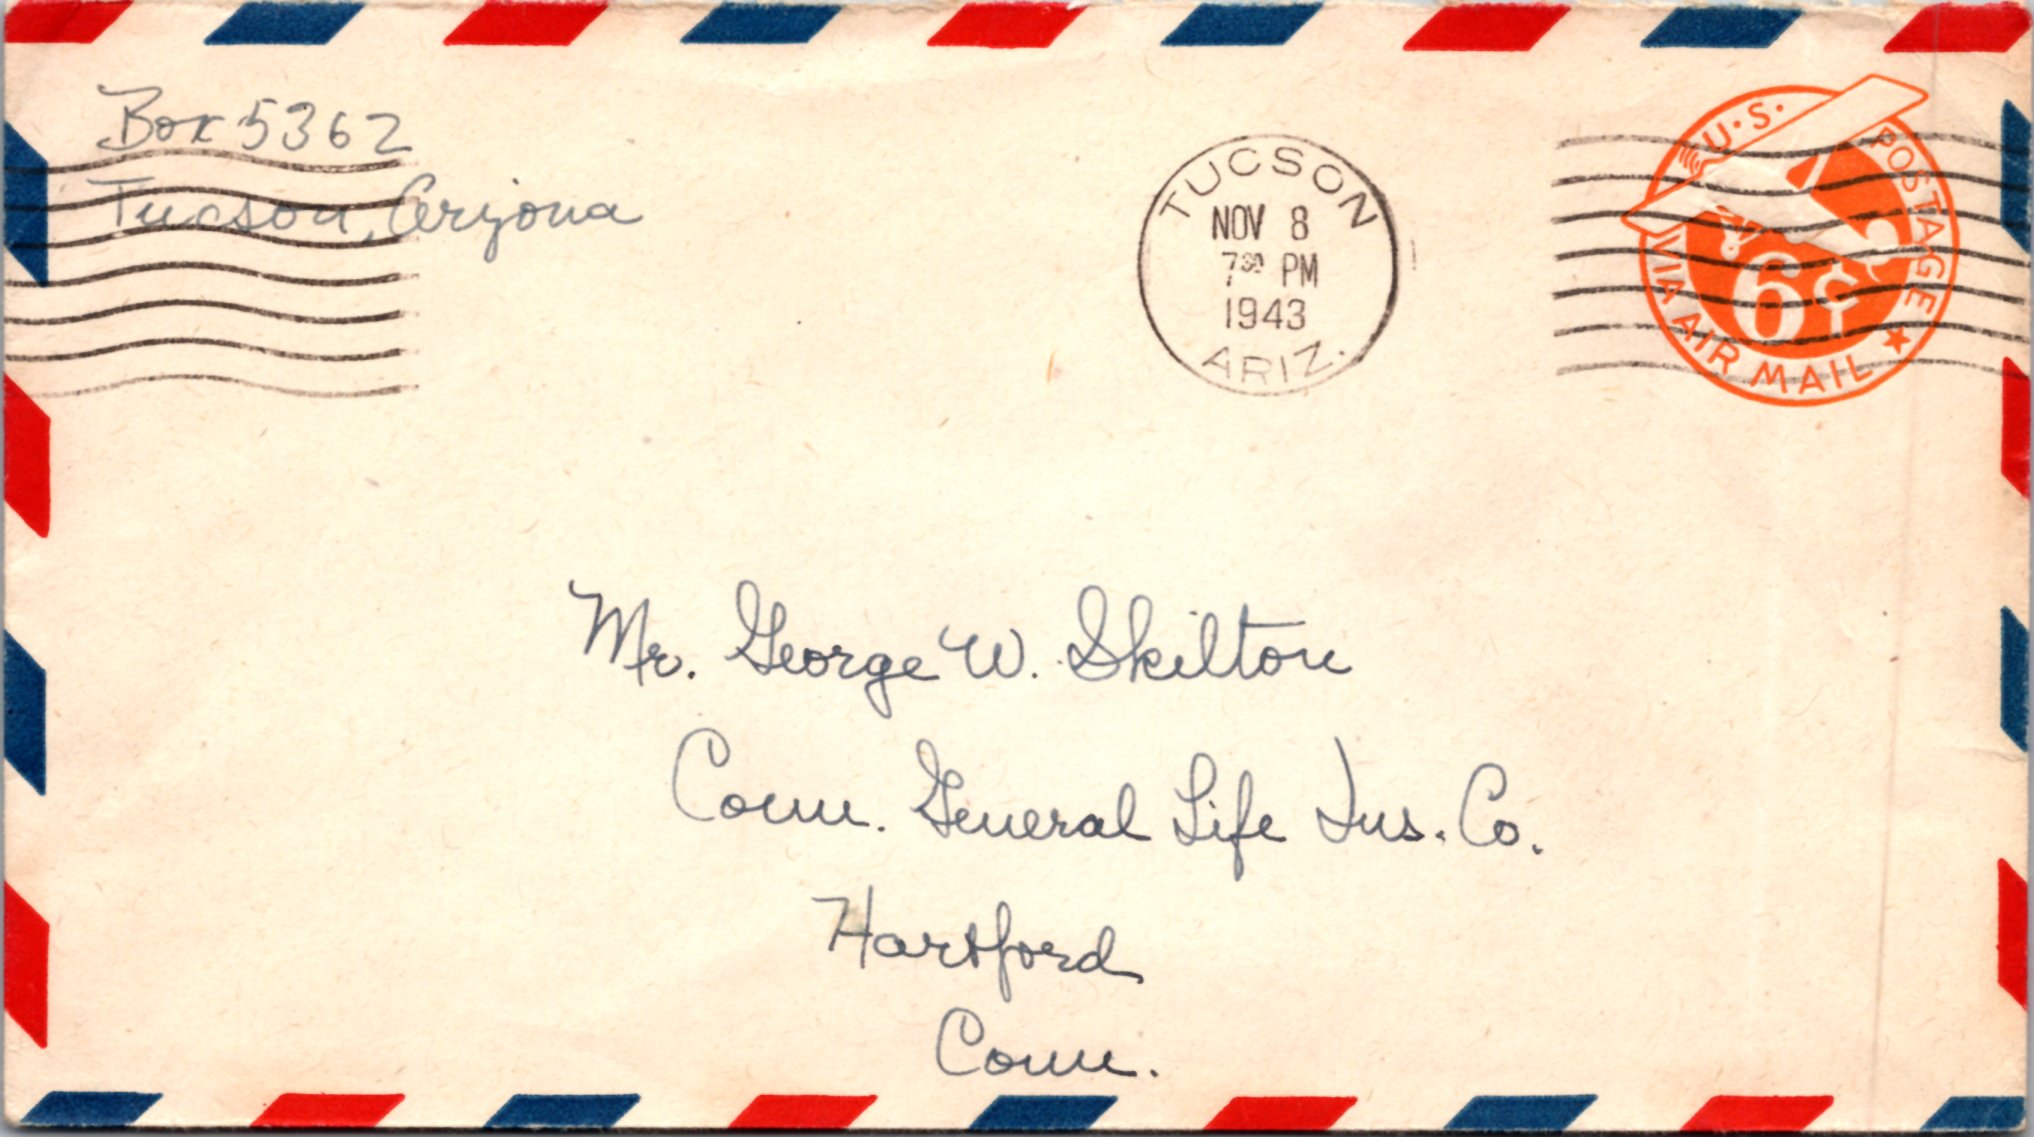 Box 5362
Tucson, Arizona
TUCSON
NOV 8
7 30 PM
1943
ARIZ.
U.S. POSTAGE
6¢
VIA AIR MAIL
Mr. George W. Skilton
Conn. General Life Ins. Co.
Hartford
Conn.